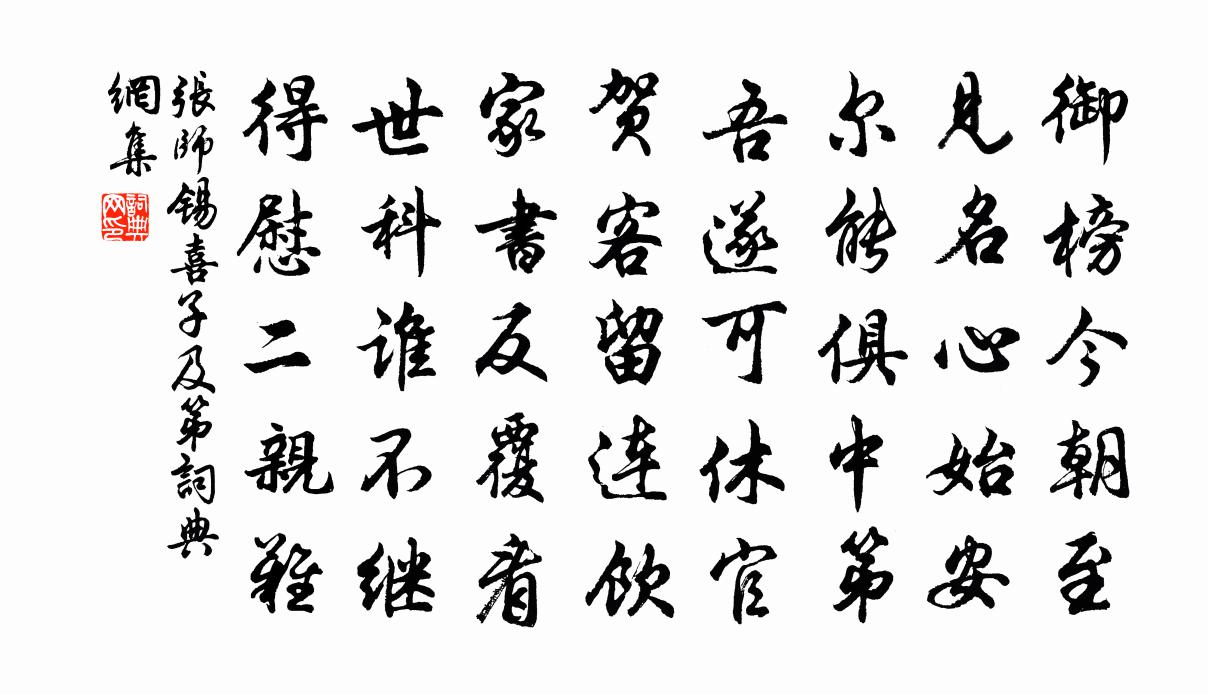 御榜今朝至
見名心始安
尔能俱中第
吾遂可休官
贺客留连飲
家書反覆看
世科谁不继
得慰二親難
張師錫喜子及第詞典
網集
詞典网印